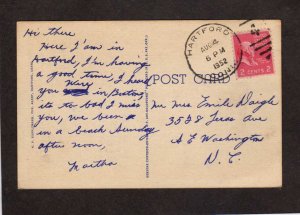 Hi there
Here I am in
Hartford, I'm having
a good time, I heard
you were in Boston
its to bad I miss
you, we been
in a beach Sunday
after noon,
Martha
POST CARD
HARTFORD
CONN
AUG 4
6 PM
1952
2 CENTS 2
Mr Mrs Emile Daigle
3538 Texas Ave
S E Washington
D. C.